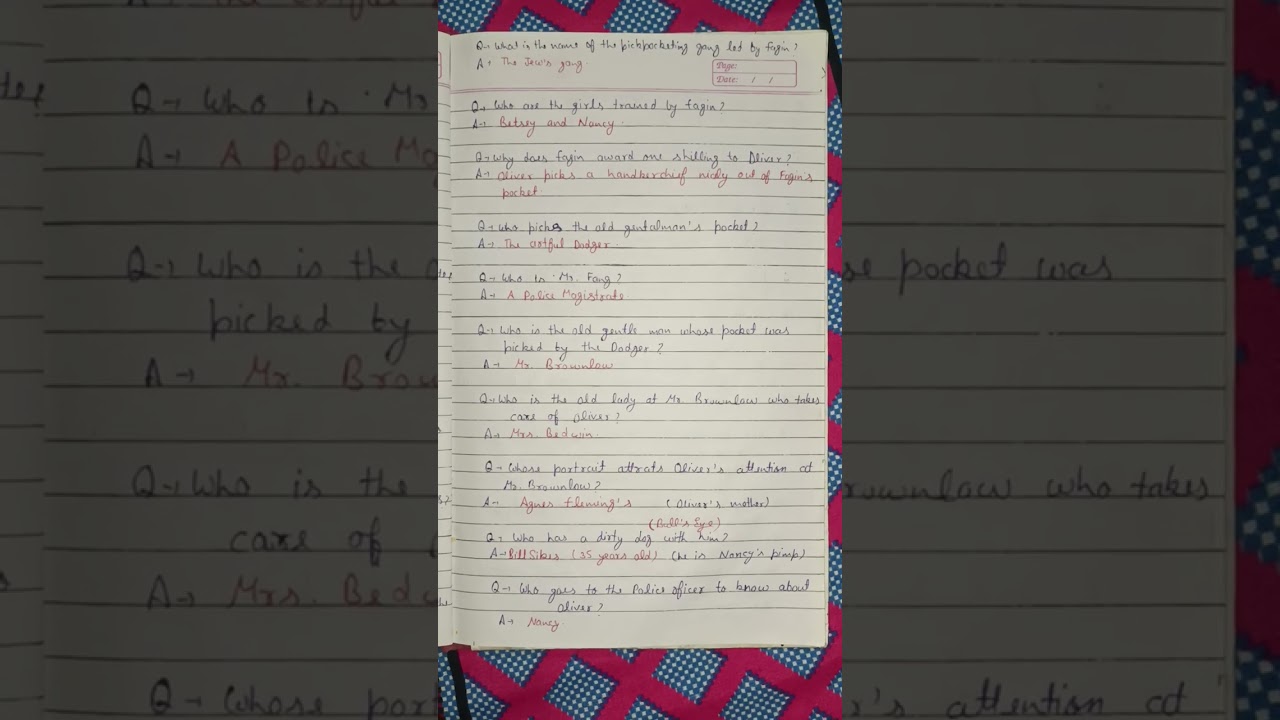 Q→ What is the name of the pickpocketing gang led by fagin?
A→ The Jew's gang.
Page:
Date: / /
Q→ Who are the girls trained by fagin?
A→ Betsey and Nancy.
Q→ Why does fagin award one shilling to Oliver?
A→ Oliver picks a handkerchief nicely out of Fagin's
pocket.
Q→ Who picks the old gentalman's pocket?
A→ The artful Dodger.
Q→ Who is Mr. Fang?
A→ A Police Magistrate.
Q→ Who is the old gentle man whose pocket was
picked by the Dodger?
A→ Mr. Brownlow
Q→ Who is the old lady at Mr. Brownlow who takes
care of Oliver?
A→ Mrs. Bedwin.
Q→ Whose portrait attrats Oliver's attention at
Mr. Brownlow?
A→ Agnes fleming's (Oliver's mother)
(Bull's Eye)
Q→ Who has a dirty dog with him?
A→ Bill Sikes (35 years old) (he is Nancy's pimp)
Q→ Who goes to the Police oficer to know about
Oliver?
A→ Nancy.